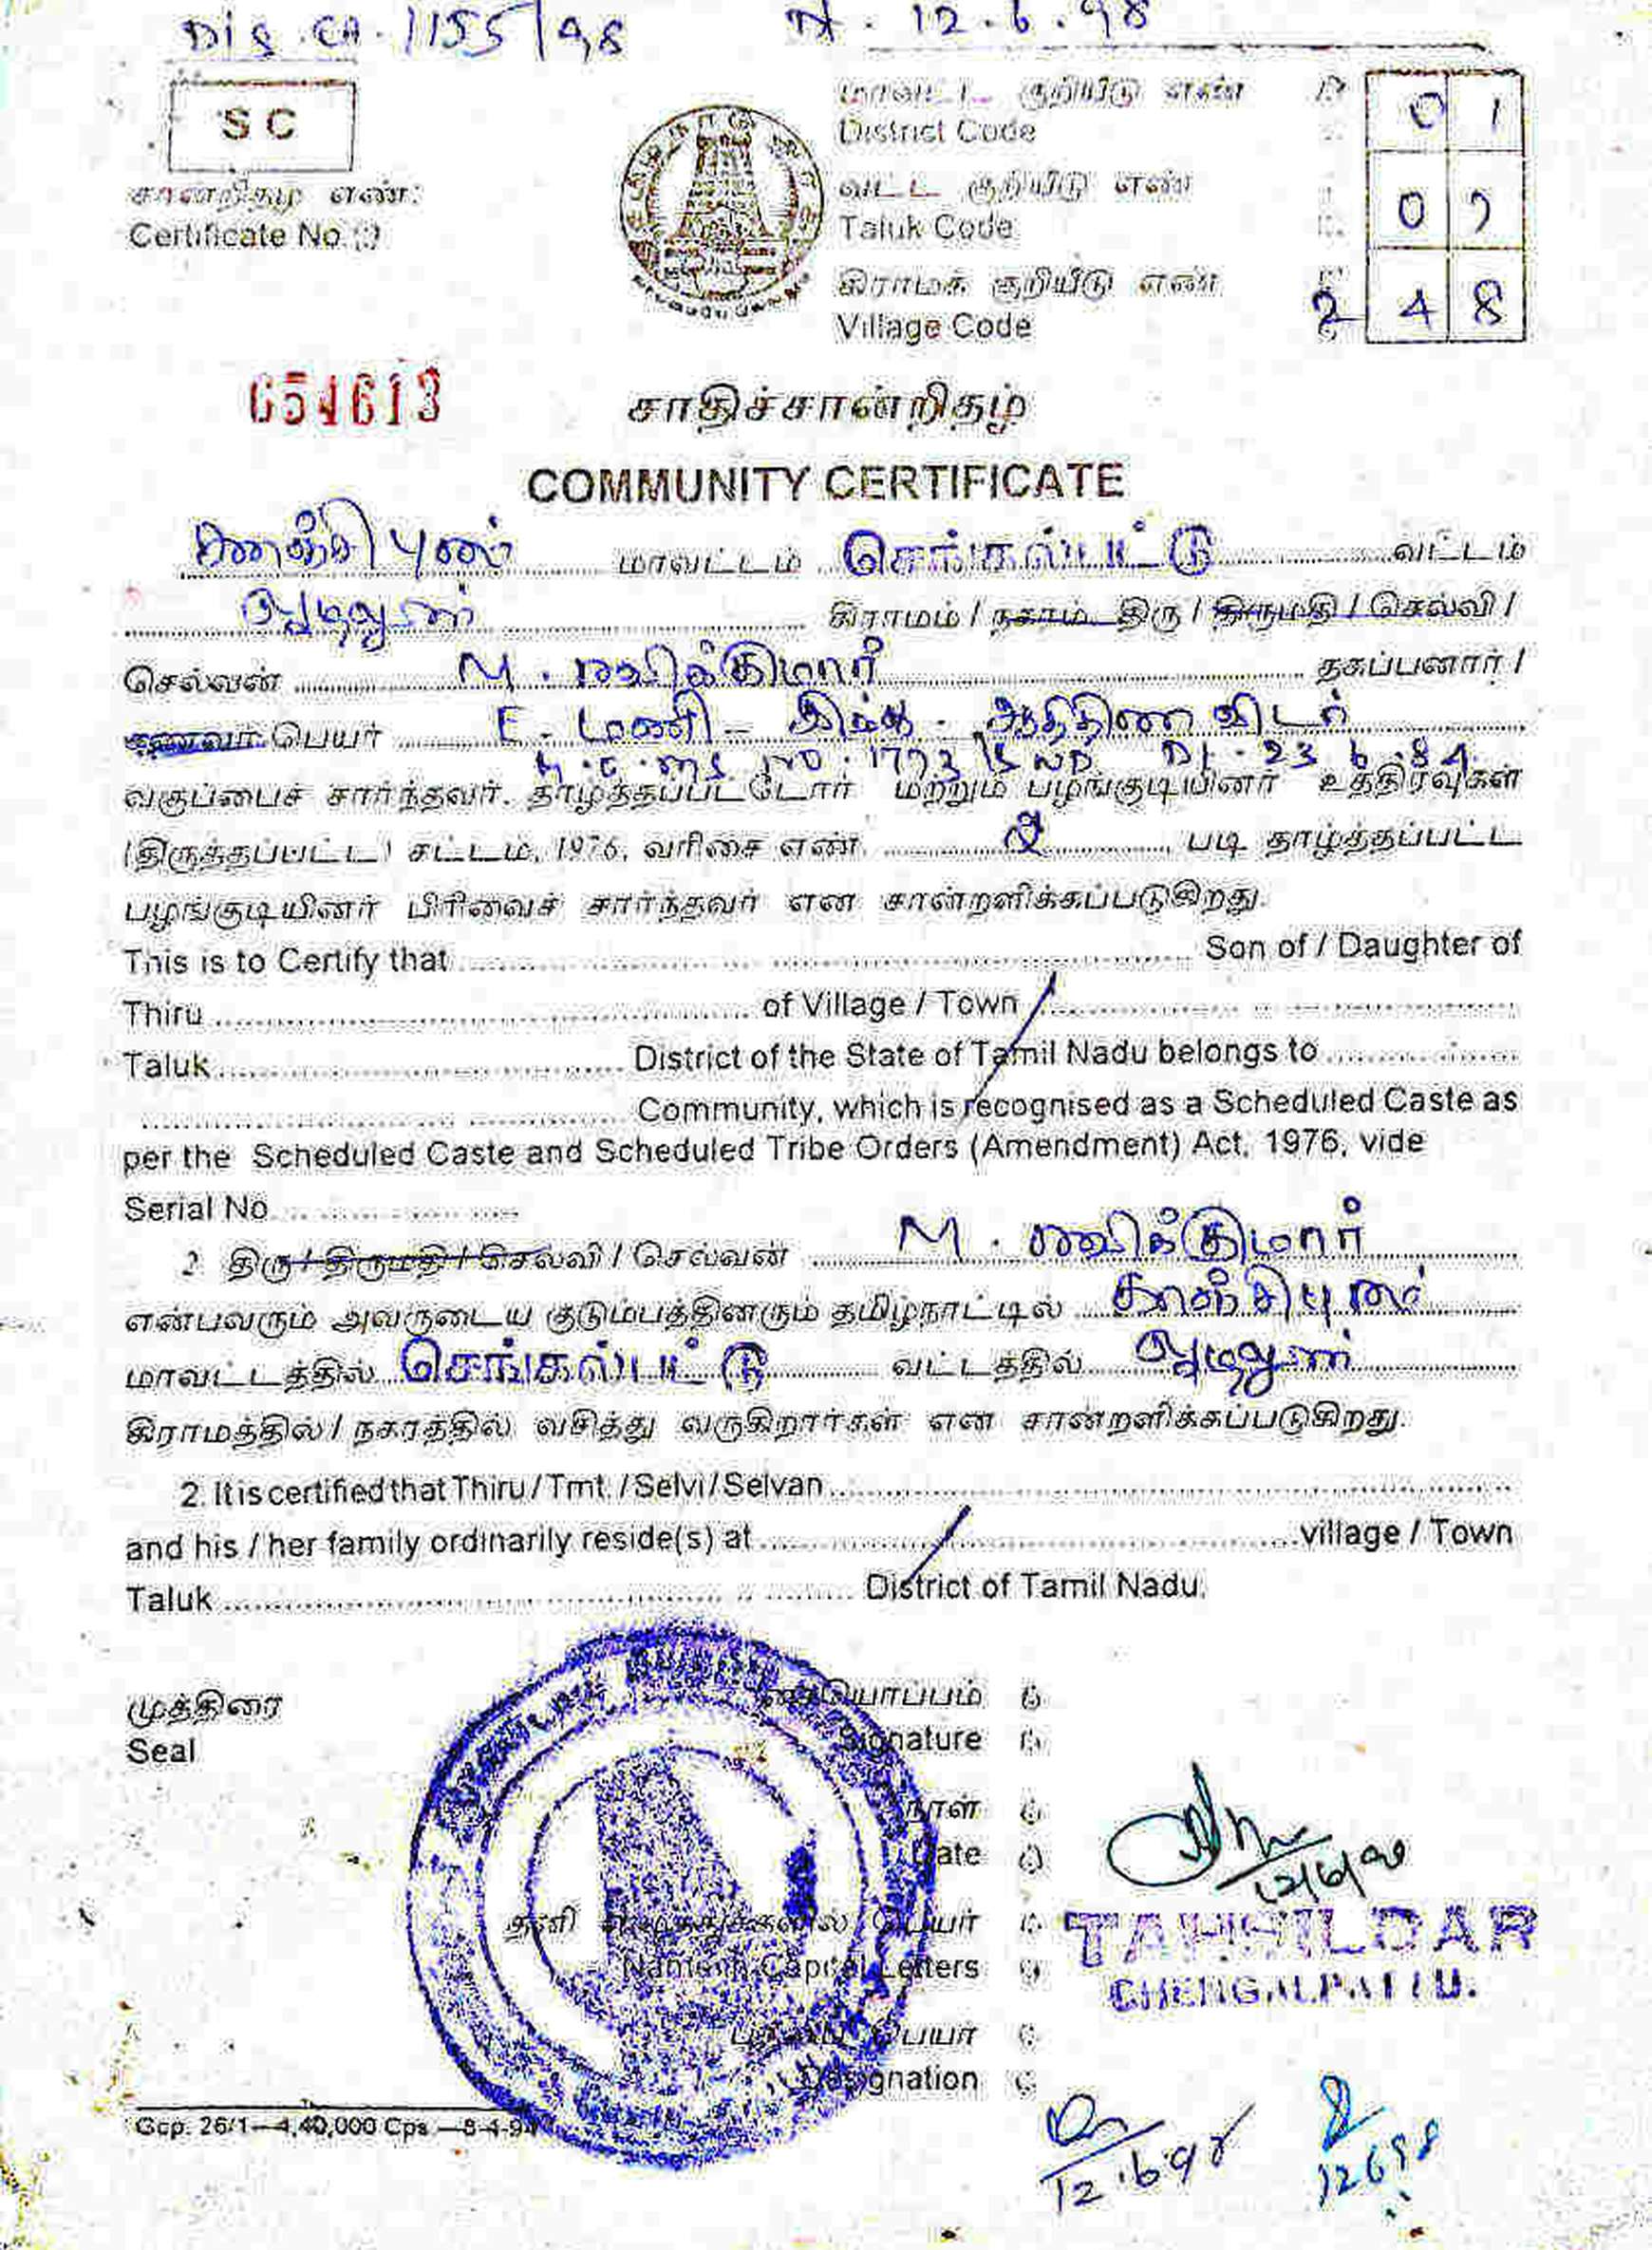 Dis. CA. 1155/98 Dt. 12.6.98
SC
சான்றிதழ் எண்:
Certificate No
மாவட்டக் குறியீடு எண்
District Code 0 1
வட்டக் குறியீடு எண்
Taluk Code 0 7
கிராமக் குறியீடு எண்
Village Code 2 4 8
054613
சாதிச்சான்றிதழ்
COMMUNITY CERTIFICATE
காஞ்சிபுரம் மாவட்டம் செங்கல்பட்டு வட்டம்
கிராமம் / நகரம் திரு / திருமதி / செல்வி /
செல்வன் M. ரவிக்குமார் தகப்பனார் /
கணவர் பெயர் E. மணி - இந்து - ஆதிதிராவிடர்
G.O. MS NO. 1773 SWD Dt. 23.6.84
வகுப்பைச் சார்ந்தவர். தாழ்த்தப்பட்டோர் மற்றும் பழங்குடியினர் உத்திரவுகள்
(திருத்தப்பட்ட) சட்டம், 1976, வரிசை எண். 2 படி தாழ்த்தப்பட்ட
பழங்குடியினர் பிரிவைச் சார்ந்தவர் என சான்றளிக்கப்படுகிறது.
This is to Certify that Son of / Daughter of
Thiru of Village / Town
Taluk District of the State of Tamil Nadu belongs to
Community, which is recognised as a Scheduled Caste as
per the Scheduled Caste and Scheduled Tribe Orders (Amendment) Act, 1976, vide
Serial No
2. திரு / திருமதி / செல்வி / செல்வன் M. ரவிக்குமார்
என்பவரும் அவருடைய குடும்பத்தினரும் தமிழ்நாட்டில் காஞ்சிபுரம்
மாவட்டத்தில் செங்கல்பட்டு வட்டத்தில்
கிராமத்தில் / நகரத்தில் வசித்து வருகிறார்கள் என சான்றளிக்கப்படுகிறது.
2. It is certified that Thiru / Tmt. / Selvi / Selvan
and his / her family ordinarily reside(s) at village / Town
Taluk District of Tamil Nadu.
முத்திரை
Seal
கையொப்பம் :
Signature :
நாள் :
Date :
12/6/98
தனி எழுத்துக்களில் பெயர் :
Name in Capital Letters :
TAHSILDAR
CHENGALPATTU.
பதவிப் பெயர் :
Designation :
Gcp. 26/1—4,40,000 Cps.—8-4-9
12.6.98 12698